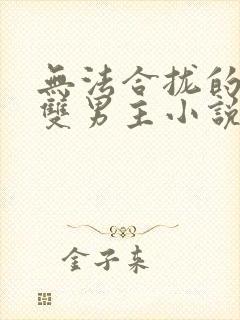 無法合拢的
雙男主小說
金子来